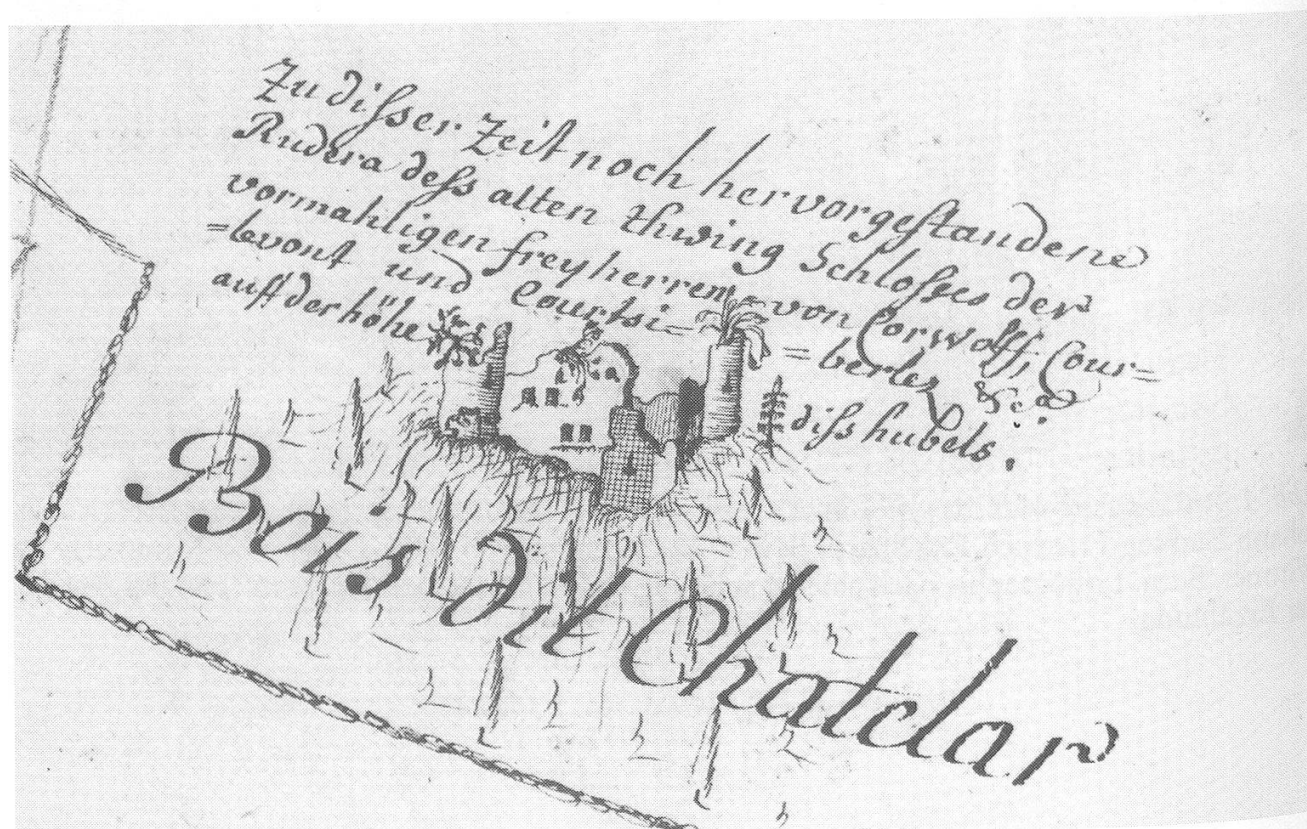 Zu disser Zeit noch hervorgestandene
Rudera dess alten thwing Schlosses der
vormahligen freyherren von Corwolff, Cour=
=levont und Courtsi= =berlez &c.a
auff der höhe diss hubels.
Bois dit Chatelar